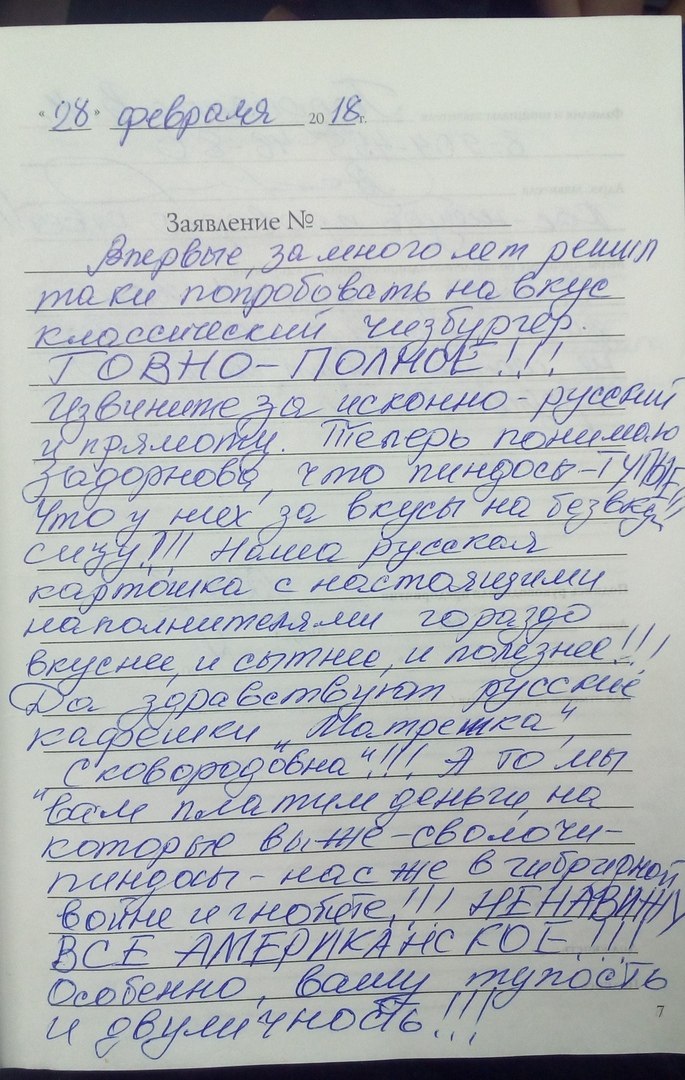 "28" февраля 2018г.
Заявление №
Впервые, за много лет решил
таки попробовать на вкус
классический чизбургер.
ГОВНО-ПОЛНОЕ!!!
Извините за исконно-русский
и прямоту. Теперь понимаю
Задорнова, что пиндосы-ТУПЫЕ
Что у них за вкусы на безвку
сицу!!! Наша русская
картошка с настоящими
наполнителями гораздо
вкуснее, и сытнее, и полезнее!!!
Да здравствуют русские
кафешки "Матрешка",
"Сковородовна"!!! А то мы
вам платим деньги, на
которые вы же-сволочи-
пиндосы-нас же в гибридной
войне и гнобите!!! НЕНАВИЖУ
ВСЕ АМЕРИКАНСКОЕ!!!
Особенно, вашу тупость
и двуличность!!!
7